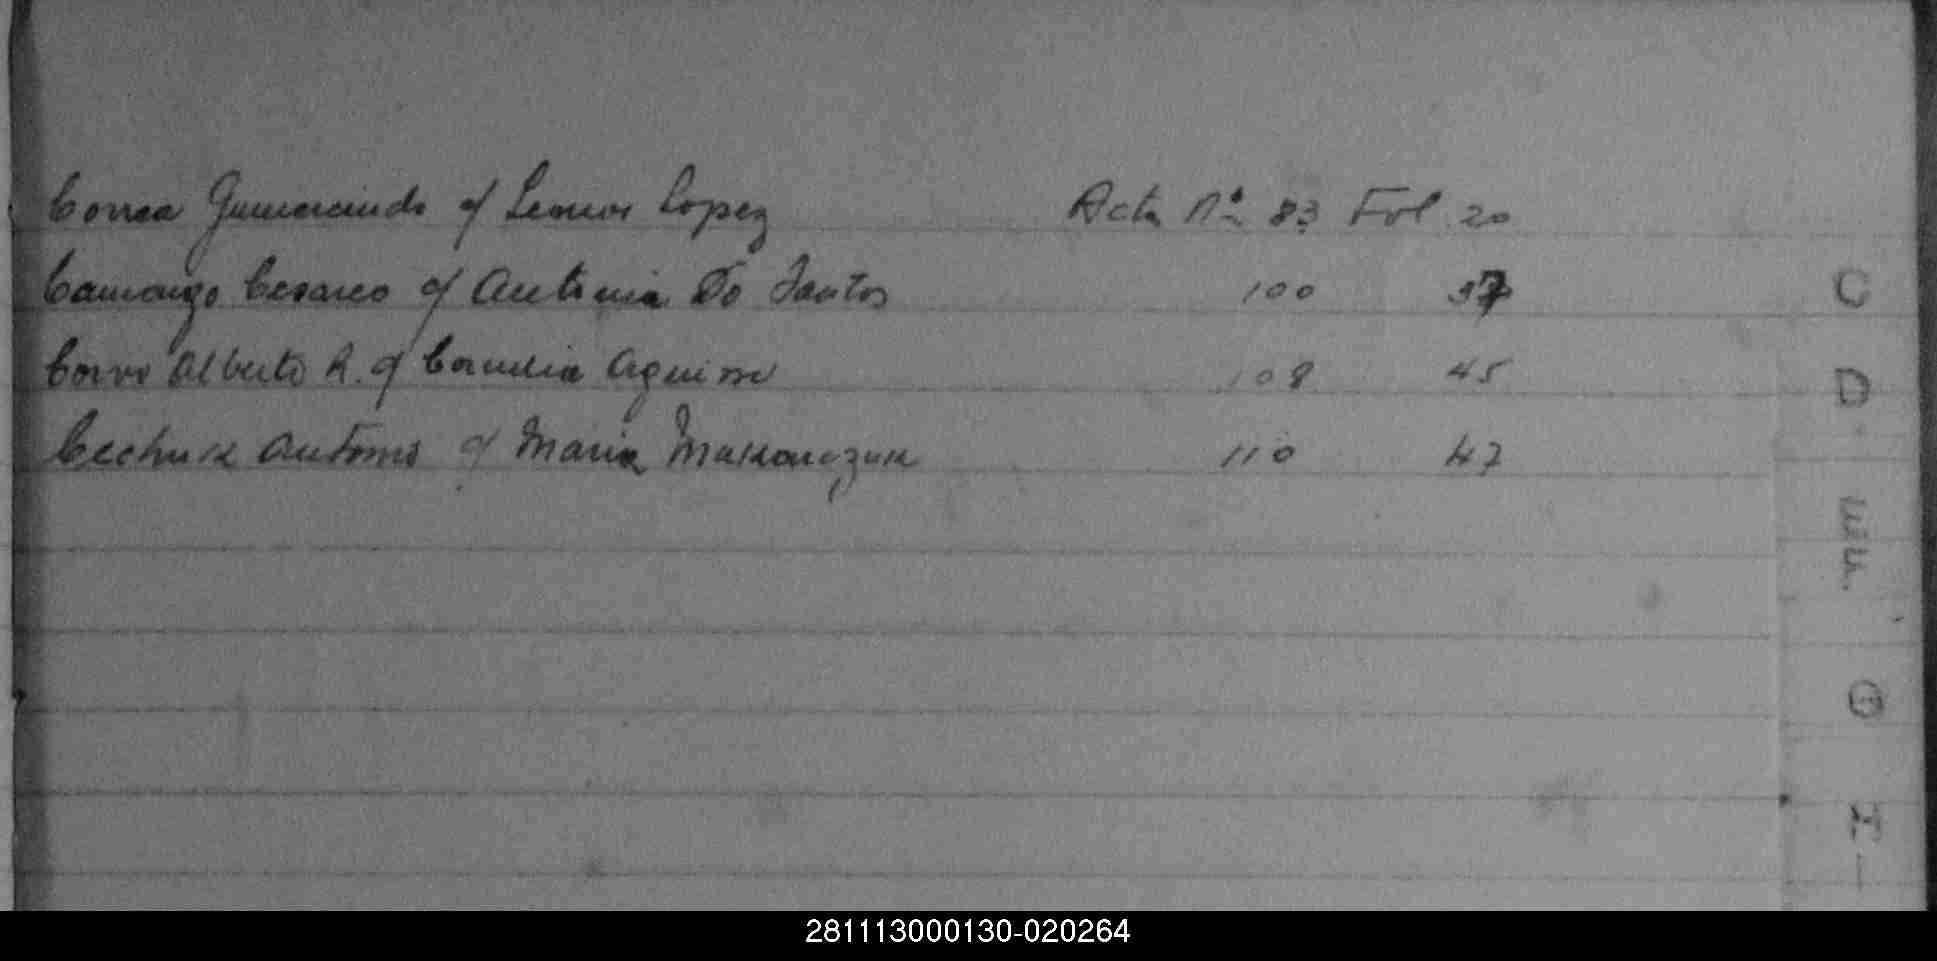 Correa Gumercindo c/ Leonor Lopez Acta Nº 83 Fol 20
Camargo Cesareo c/ Antonia Do Santos 100 37
Corvo Alberto R. c/ Cornelia Aguirre 108 45
Cechuk Antonio c/ Maria Makarczuk 110 47
C
D
G
I
281113000130-020264